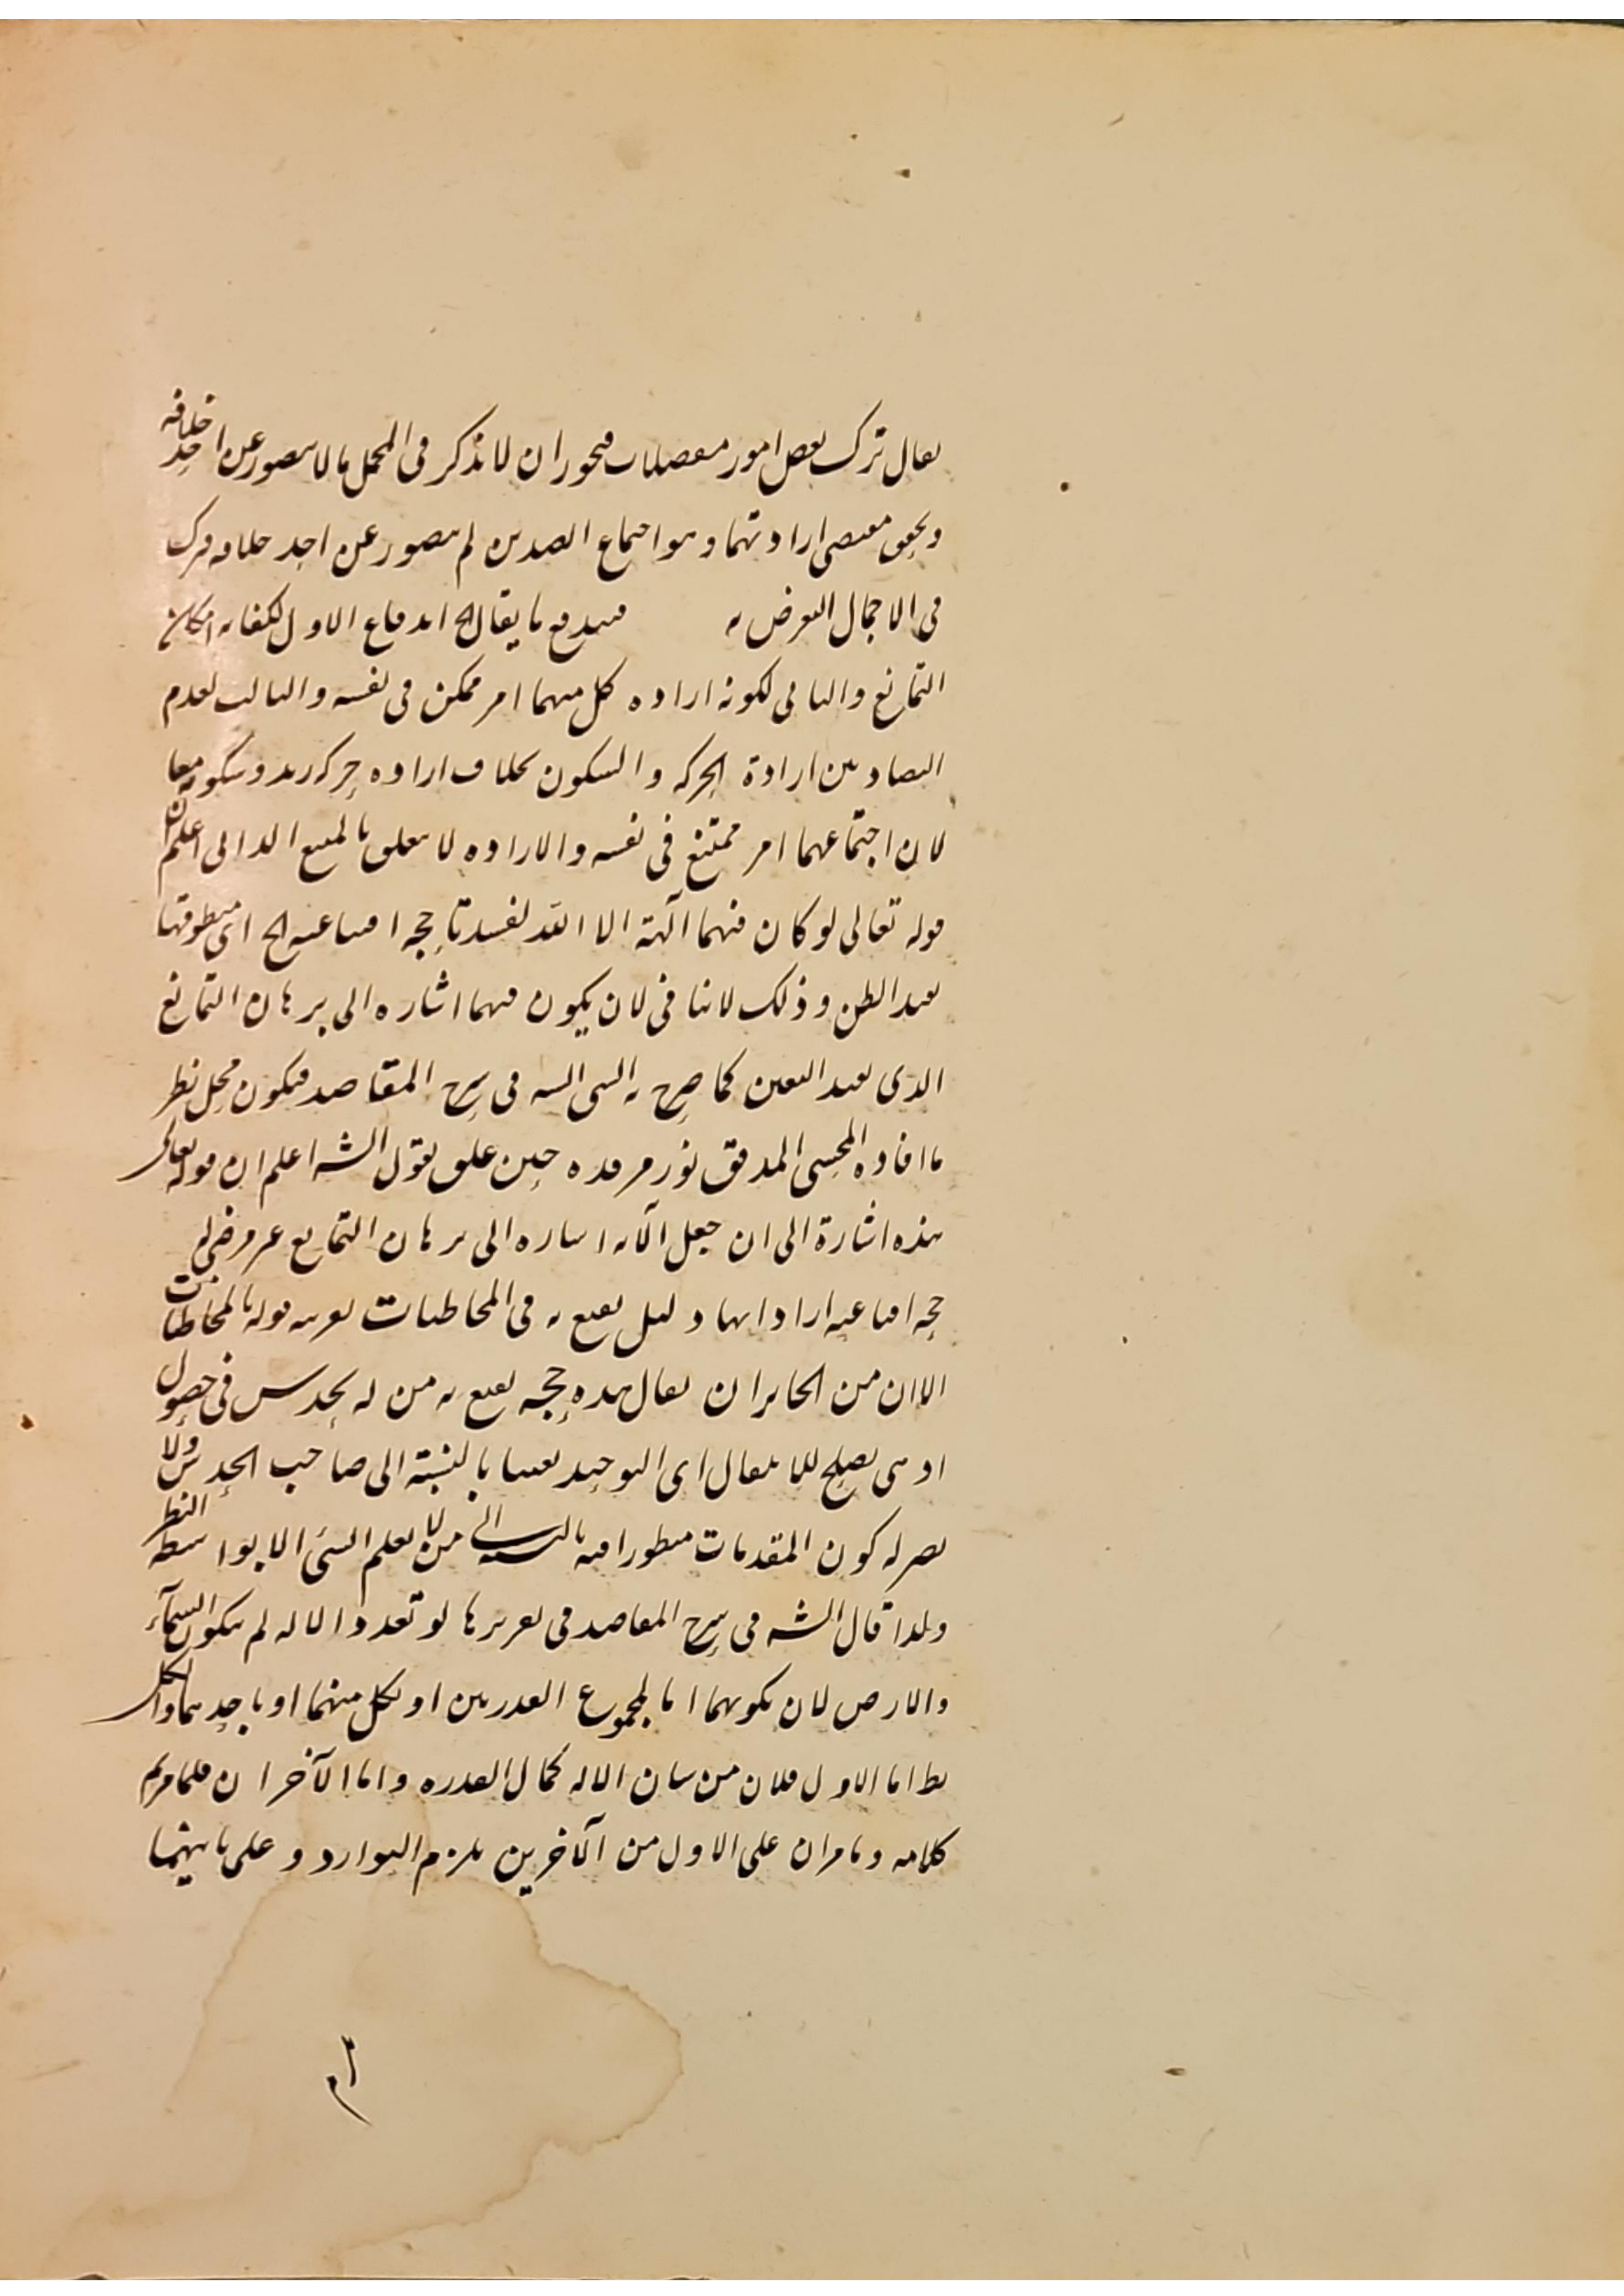 يقال ترك بعض امور مفصلات فيجوز ان لا يذكر فى المجمل ما لا يتصور عن احد خلافه
وتحقق مقتضى ارادتهما وهو اجتماع الضدين لم يتصور عن احد خلافه فترك
فى الاجمال التعرض به فيندفع ما يقال الخ اندفاع الاول لكفاية امكان
التمانع والثانى لكونه ارادة كل منهما امر ممكن فى نفسه والثالث لعدم
التضاد بين ارادة الحركة والسكون بخلاف ارادة حركة زيد وسكونه معا
لان اجتماعهما امر ممتنع فى نفسه والارادة لا يتعلق بالممتنع الذاتى اعلم ان
قوله تعالى لو كان فيهما آلهة الا الله لفسدتا حجة اقناعية الخ اى منطوقها
يفيد الظن وذلك لا ينافى لان يكون فيهما اشارة الى برهان التمانع
الذى يفيد اليقين كما صرح به فى شرح المقاصد فيكون محل نظر
ما افاده المحشى المدقق نور مرقده حين علق بقول الشه اعلم ان قوله تعالى
هذه اشارة الى ان جعل الآية اشارة الى برهان التمانع غير مرضى له
حجة اقناعية اراد انها دليل يقنع به فى المخاطبات بقرينة قوله بالمخاطبات
الا ان من الجائز ان يقال هذه حجة يقنع به من له حدس فى حصول
اذ هى يصلح للانتقال اى التوحيد يقينا بالنسبة الى صاحب الحدس ولا
يضر له كون المقدمات منظورا فيه بالنسبة الى من لا يعلم الشئ الا بواسطة النظر
ولذا قال الشه فى شرح المقاصد فى تقريرها لو تعدد الاله لم يتكون السماء
والارض لان تكونهما اما بمجموع القدرتين او بكل منهما او باحديهما والكل
بط اما الاول فلان من شان الاله كمال القدرة واما الآخران فلما مر تم
كلامه وما مر ان على الاول من الآخرين يلزم التوارد وعلى ثانيهما